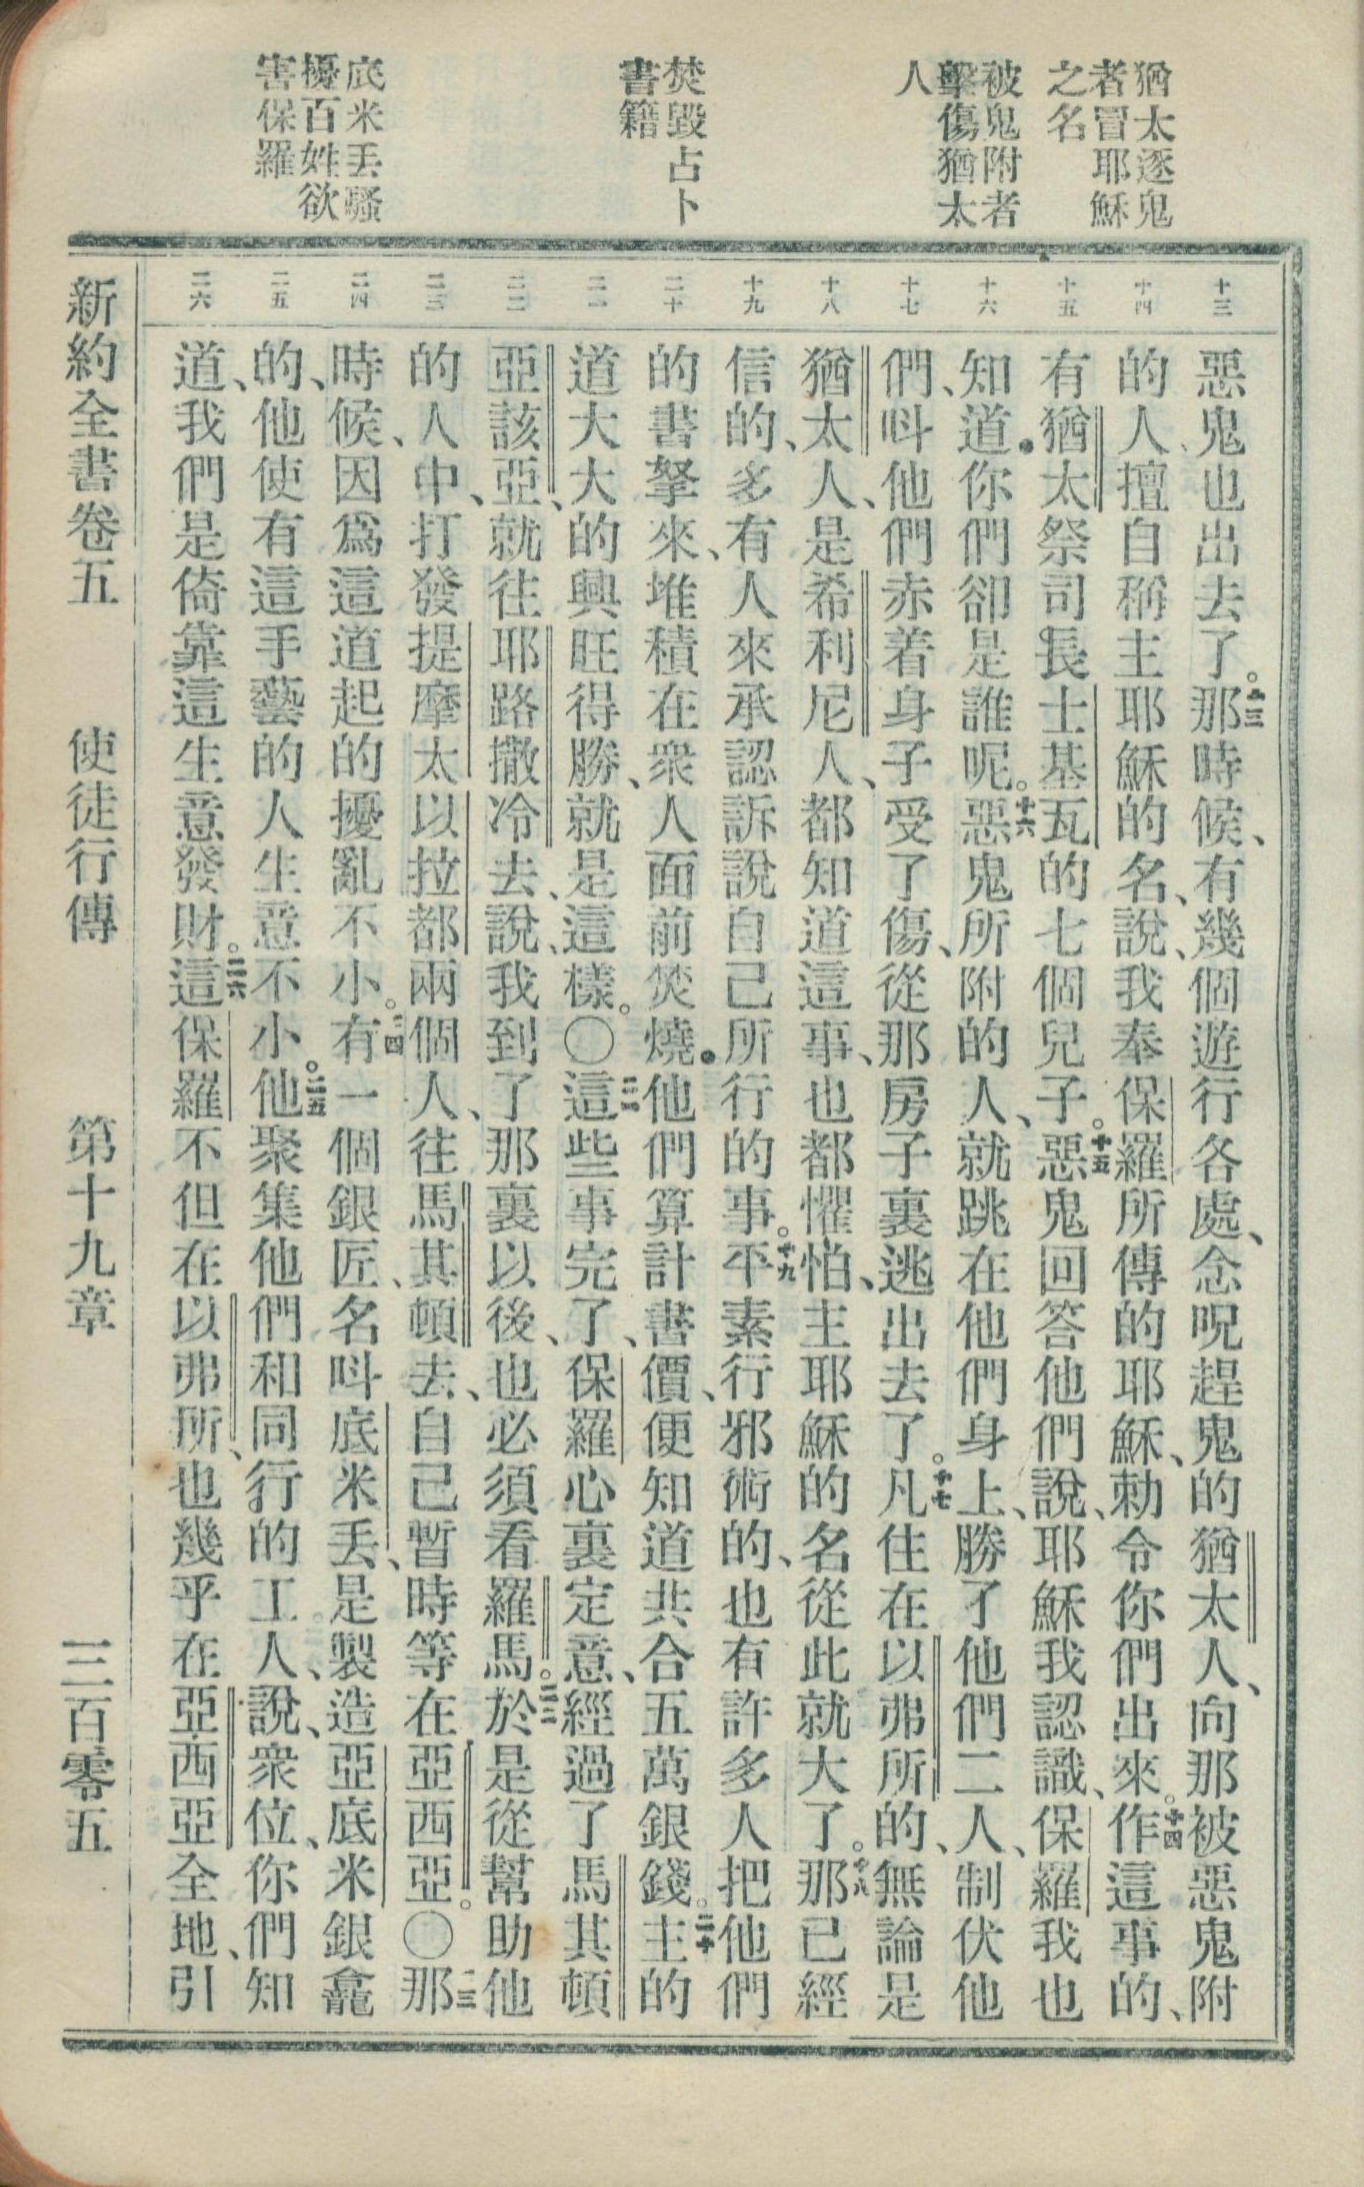 猶太逐鬼
者冒耶穌
之名
被鬼附者
擊傷猶太
人
焚毀占卜
書籍
底米丟騷
擾百姓欲
害保羅
十三
十四
十五
十六
十七
十八
十九
二十
二一
二二
二三
二四
二五
二六
惡鬼也出去了。十三那時候、有幾個遊行各處、念呪趕鬼的猶太人、向那被惡鬼附
的人、擅自稱主耶穌的名、說、我奉保羅所傳的耶穌、勅令你們出來。十四作這事的、
有猶太祭司長士基瓦的七個兒子。十五惡鬼回答他們說、耶穌我認識、保羅我也
知道。你們卻是誰呢。十六惡鬼所附的人、就跳在他們身上、勝了他們二人、制伏他
們、呌他們赤着身子受了傷、從那房子裏逃出去了。十七凡住在以弗所的、無論是
猶太人、是希利尼人、都知道這事、也都懼怕、主耶穌的名從此就大了。十八那已經
信的、多有人來承認訴說自己所行的事。十九平素行邪術的、也有許多人把他們
的書拏來、堆積在衆人面前焚燒。他們算計書價、便知道共合五萬銀錢。二十主的
道大大的興旺得勝、就是這樣。〇二一這些事完了、保羅心裏定意、經過了馬其頓
亞該亞、就往耶路撒冷去、說、我到了那裏以後、也必須看羅馬。二二於是從幫助他
的人中、打發提摩太以拉都兩個人、往馬其頓去、自己暫時等在亞西亞。〇二三那
時候、因爲這道起的擾亂不小。二四有一個銀匠、名呌底米丟、是製造亞底米銀龕
的、他使有這手藝的人生意不小。二五他聚集他們和同行的工人、說、衆位、你們知
道、我們是倚靠這生意發財。二六這保羅不但在以弗所、也幾乎在亞西亞全地、引
新約全書卷五　使徒行傳　第十九章　三百零五